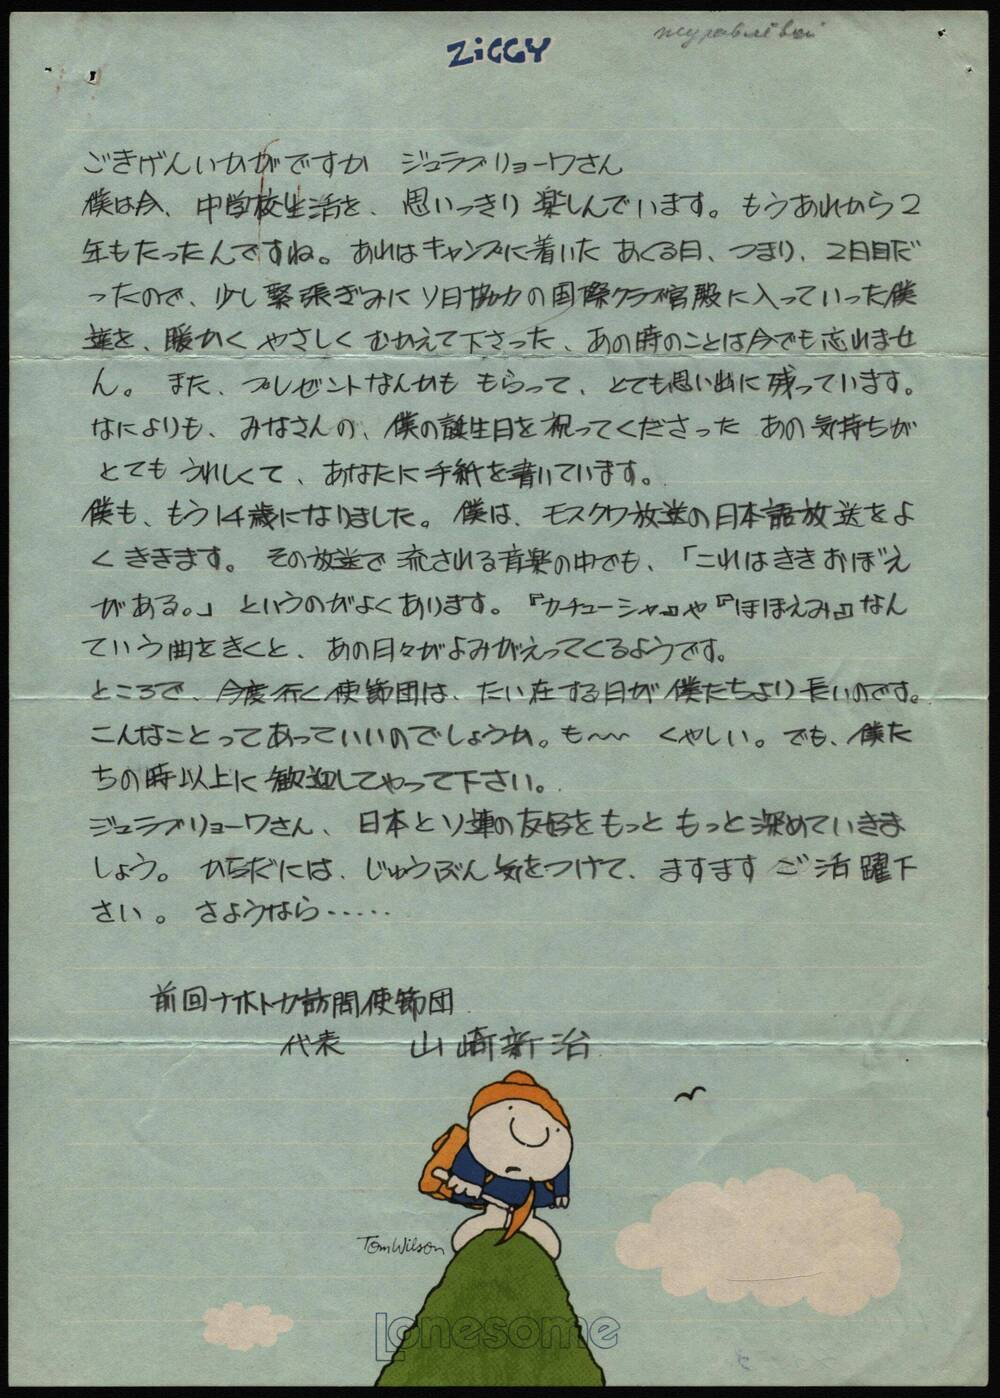 ZiGGY
журавлёвой
ごきげんいかがですか ジュラブリョーワさん
僕は今、中学校生活を、思いっきり楽しんでいます。もうあれから2
年もたったんですね。あれはキャンプに着いた あくる日、つまり、2日目だ
ったので、少し緊張ぎみに ソ日協力の国際クラブ宮殿に入っていった僕
達を、暖かく やさしく むかえて下さった、あの時のことは今でも忘れませ
ん。また、プレゼントなんかも もらって、とても思い出に残っています。
なによりも、みなさんの、僕の誕生日を祝ってくださった あの気持ちが
とても うれしくて、あなたに手紙を書いています。
僕も、もう14歳になりました。僕は、モスクワ放送の日本語放送をよ
くききます。その放送で流される音楽の中でも、「これはききおぼえ
がある。」というのがよくあります。『カーチューシャ』や『ほほえみ』なん
ていう曲をきくと、あの日々がよみがえってくるようです。
ところで、今度行く使節団は、たい在する日が僕たちより長いのです。
こんなことってあっていいのでしょうか。も〜〜 くやしい。でも、僕た
ちの時以上に歓迎してやって下さい。
ジュラブリョーワさん、日本とソ連の友好をもっと もっと深めていきま
しょう。からだには、じゅうぶん気をつけて、ますます ご活躍下
さい。さようなら‥‥‥
前回ナホトカ訪問使節団
代表 山崎新治
TomWilson
Lonesome